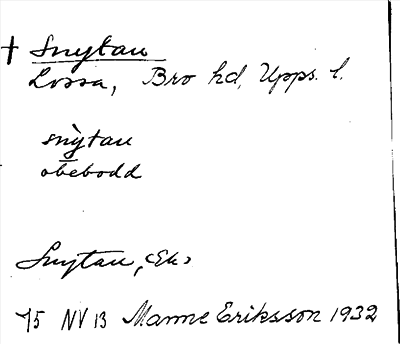 † Snytan
Lossa, Bro hd, Upps. l.
snỳtan
obebodd
Snytan, (Ek)
75 NV 13 Manne Eriksson 1932